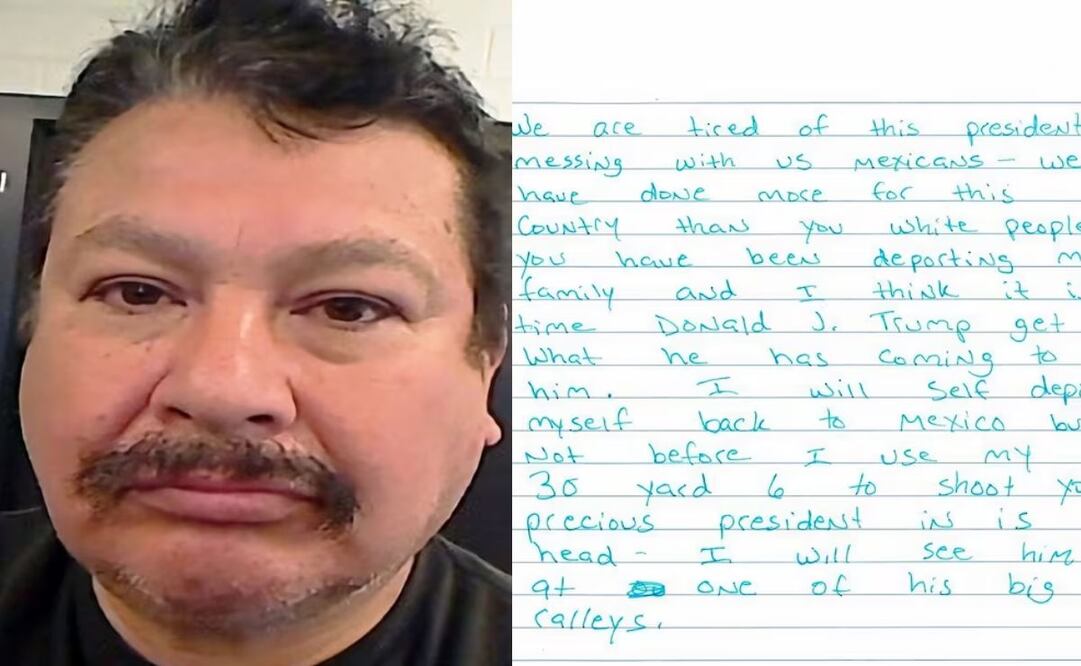 We are tired of this president
messing with us mexicans - we
have done more for this
Country than you white people
you have been deporting m
family and I think it i
time Donald J. Trump get
what he has coming to
him. I will self depo
myself back to mexico bu
Not before I use my
30 yard 6 to shoot yo
precious president in is
head - I will see him
at one of his big
ralleys.